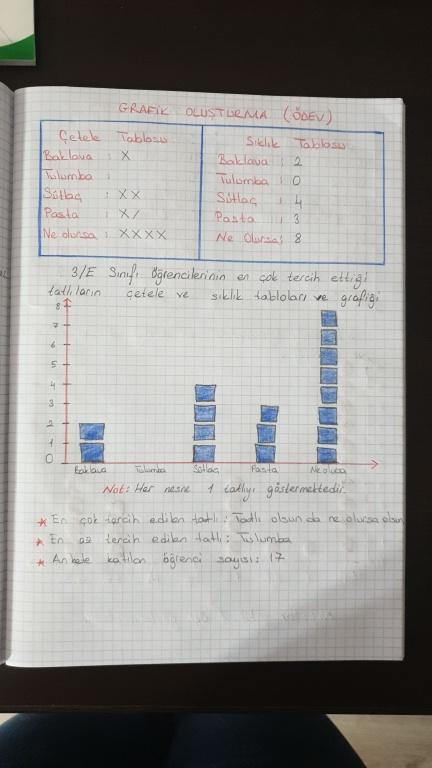 GRAFİK OLUŞTURMA (ÖDEV)
Çetele Tablosu
Baklava : X
Tulumba :
Sütlaç : XX
Pasta : X/
Ne olursa : XXXX
Sıklık Tablosu
Baklava : 2
Tulumba : 0
Sütlaç : 4
Pasta : 3
Ne Olursa : 8
3/E Sınıfı Öğrencilerinin en çok tercih ettiği
tatlıların çetele ve sıklık tabloları ve grafiği
8
7
6
5
4
3
2
1
0
Baklava Tulumba Sütlaç Pasta Ne olursa
Not: Her nesne 1 tatlıyı göstermektedir.
* En çok tercih edilen tatlı : Tatlı olsun da ne olursa olsun
* En az tercih edilen tatlı : Tulumba
* Ankete katılan öğrenci sayısı : 17